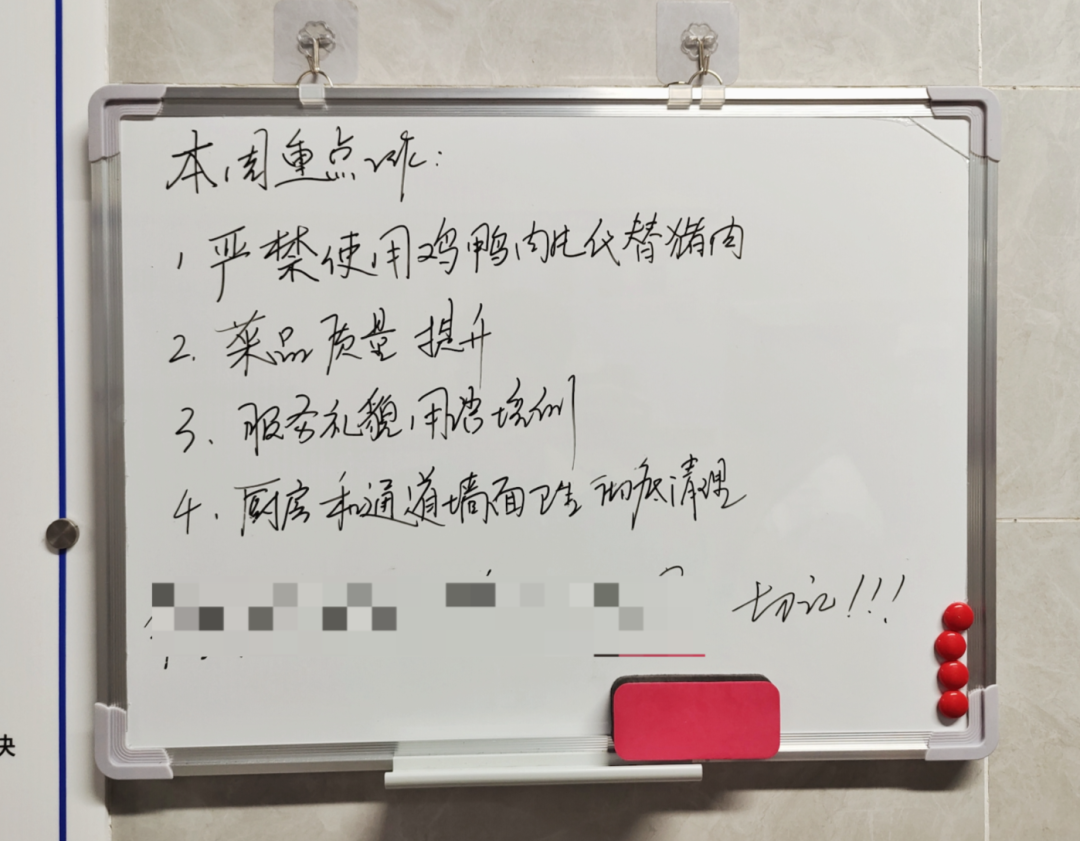 本周重点工作:
1, 严禁使用鸡鸭肉代替猪肉
2. 菜品质量提升
3. 服务礼貌用语培训
4. 厨房和通道墙面卫生彻底清理
切记!!!